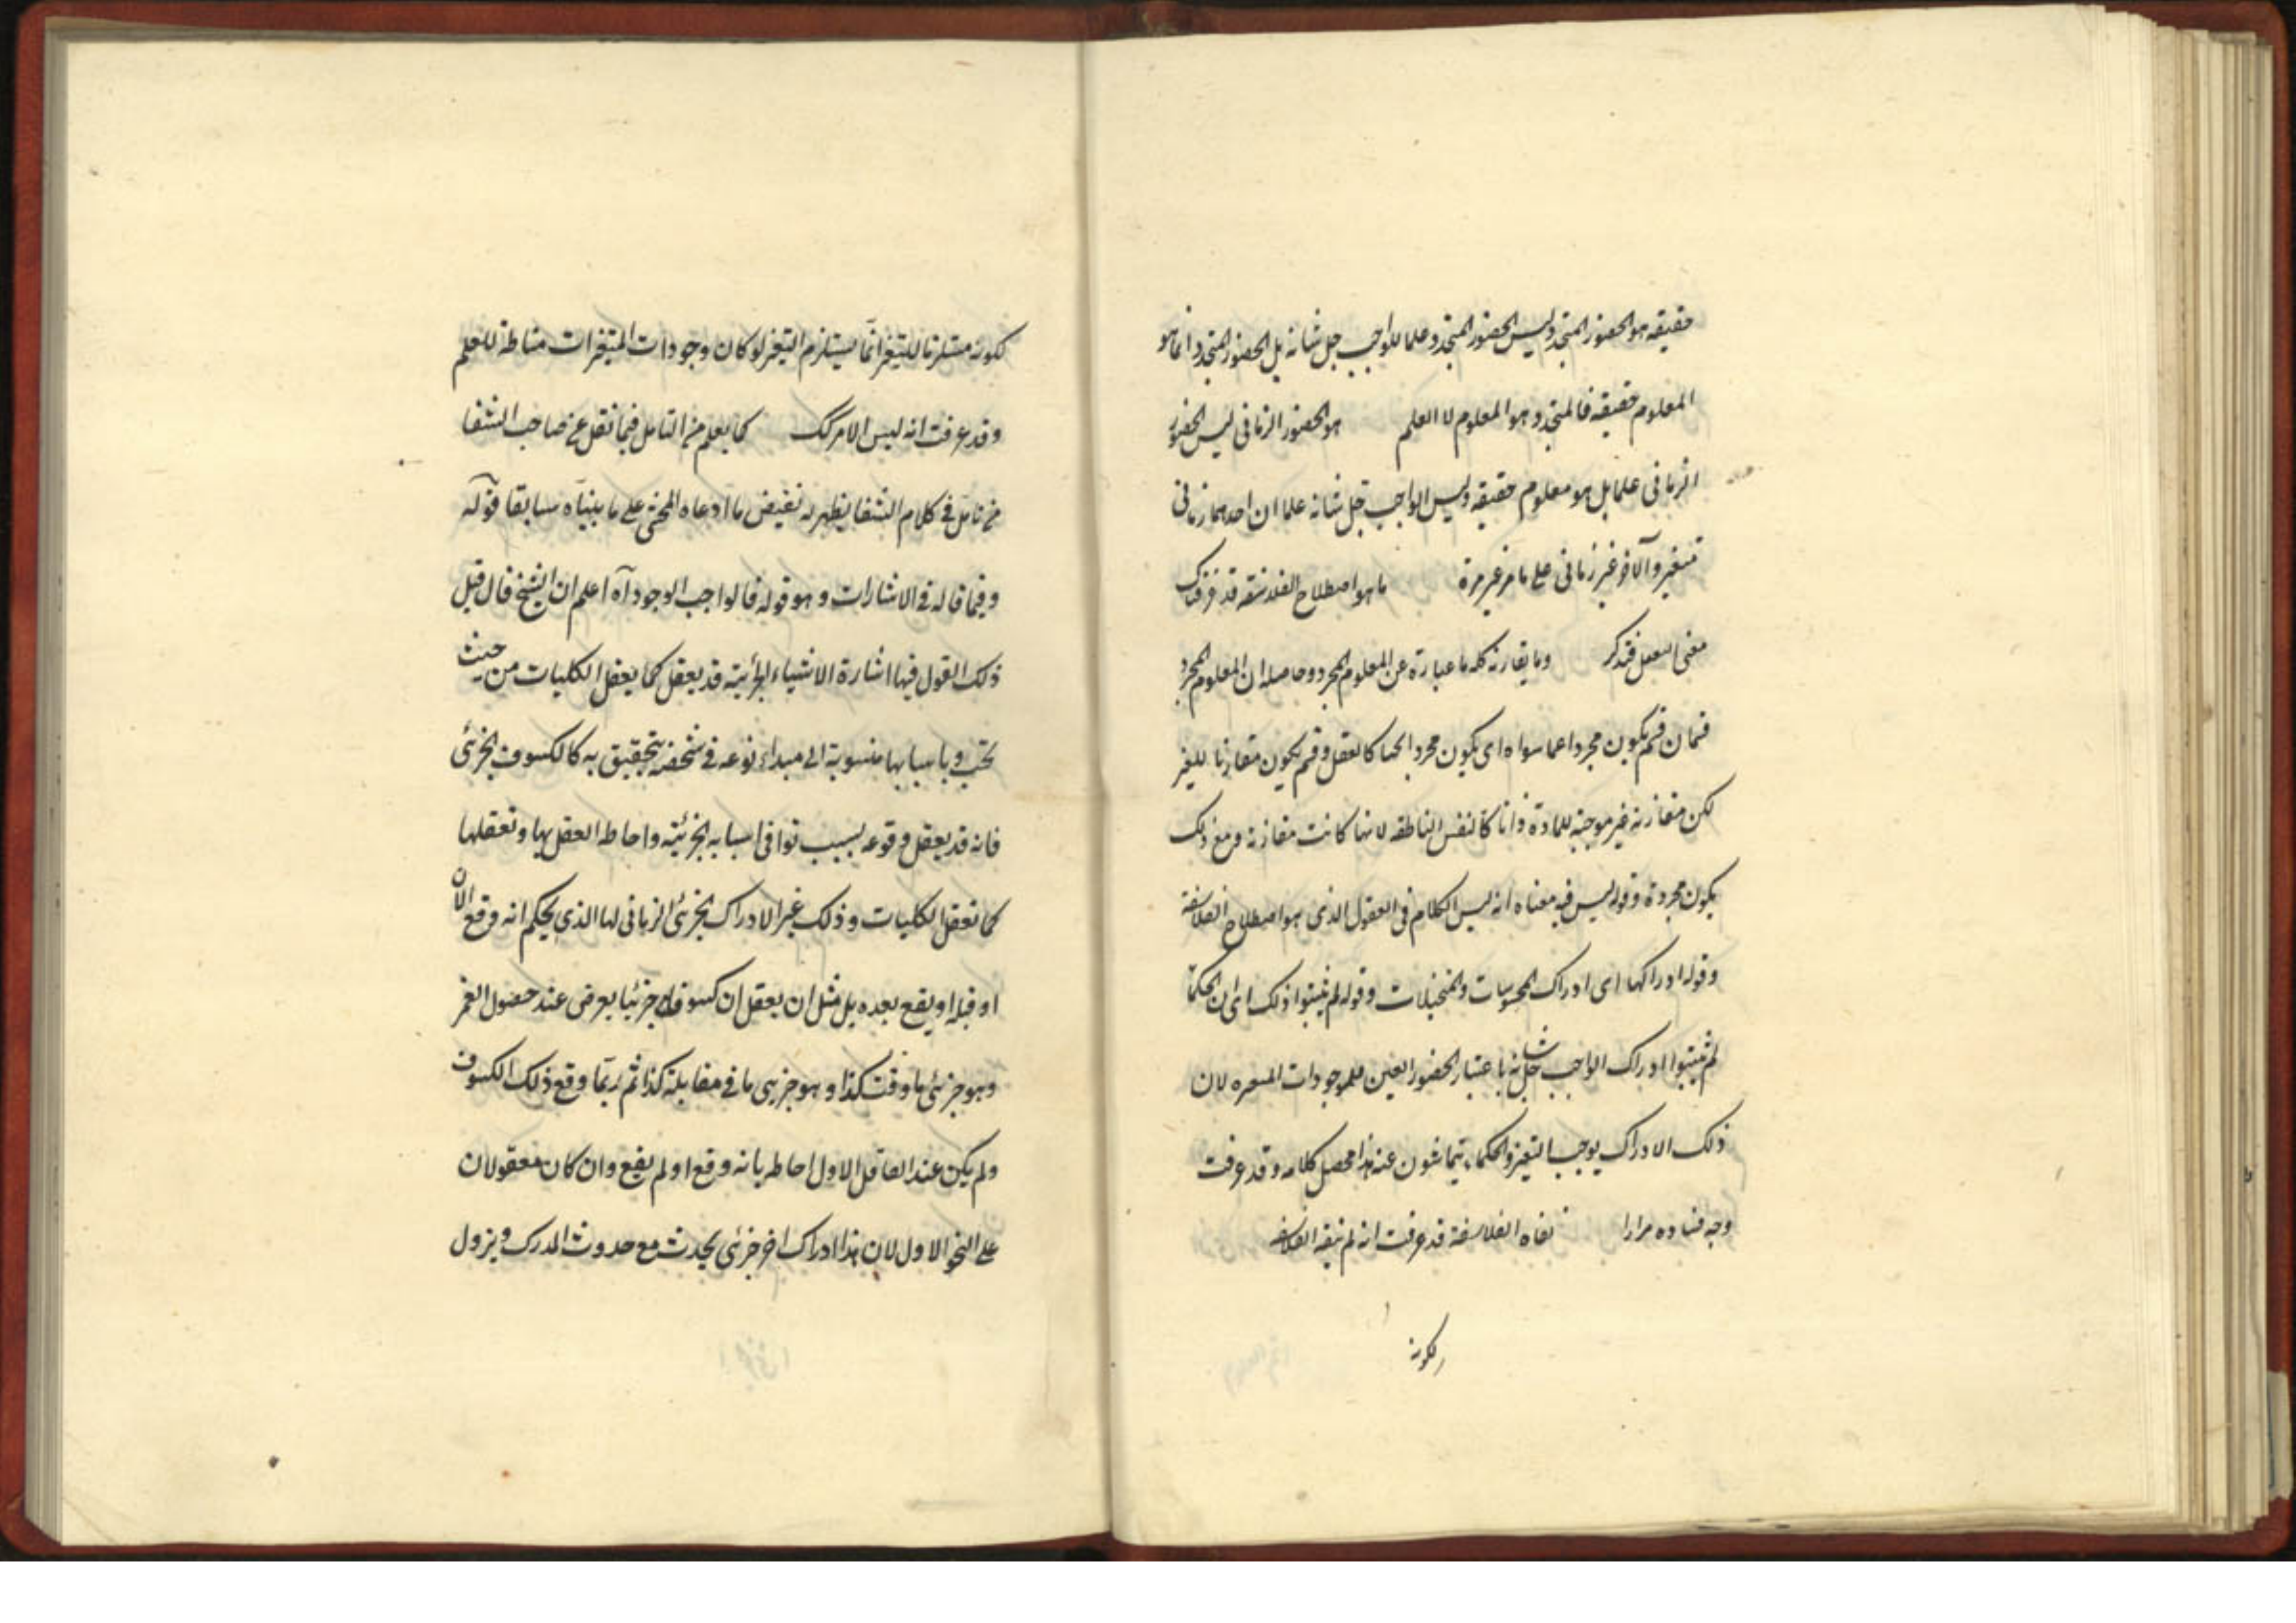 حقيقه هو الحضور المتجدد وليس الحضور المتجدد علما للواجب جل شانه بل الحضور المتجدد انما هو
المعلوم حقيقه فالمتجدد هو المعلوم لا العلم هو الحضور الزمانى ليس الحضور
الزمانى علما بل هو معلوم حقيقه وليس الواجب جل شانه علما ان احدهما زمانى
متغير والآخر غير زمانى على ما مر غير مرة ما هو اصطلاح الفلاسفه قد عرفناك
معنى التعقل فتذكر وما يقارنه كله ما عبارة عن المعلوم المجرد وحاصله ان المعلوم المجرد
قسمان قسم يكون مجردا عما سواه اى يكون مجردا بحتا كالعقل وقسم يكون مقارنا للغير
لكن مقارنة غير موجبة للمادة ذاتا كالنفس الناطقه لانها كانت مقارنة ومع ذلك
يكون مجردة وقوله ليس فيه معناه انه ليس الكلام فى العقول الذى هو اصطلاح الفلاسفة
وقوله ادراكها اى ادراك المحسوسات والمتخيلات وقوله لم يثبتوا ذلك اى ان الحكما
لم يثبتوا ادراك الواجب جل شانه باعتبار الحضور العين للموجودات المتغيره لان
ذلك الادراك يوجب التغير والحكماء يتحاشون عنه هذا محصل كلامه وقد عرفت
وجه فساده مرارا نفاه الفلاسفة قد عرفت انه لم ينفه الفلاسفه
لكونه
لكونه مستلزما للتغير انما يستلزم التغير لو كان وجودات المتغيرات مناطة للعلم
وقد عرفت انه ليس الامر كك كما يعلم من التامل فيما نقل عن صاحب الشفا
من تامل فى كلام الشفا يظهر له نقيض ما ادعاه المحشى على ما بيناه سابقا قوله
وفيما قاله فى الاشارات وهو قوله فالواجب الوجود آه اعلم ان الشيخ قال قبل
ذلك القول فيها اشارة الاشياء الجزئية قد يعقل كما يعقل الكليات من حيث
تجب وباسبابها منسوبة الى مبداء نوعه فى شخصه يتحقيق به كالكسوف الجزئى
فانه قد يعقل وقوعه بسبب توافى اسبابه الجزئية واحاط العقل بها وتعقلها
كما تعقل الكليات وذلك غير الادراك الجزئى الزمانى لها الذى يحكم انه وقع الان
او قبله او يقع بعده بل مثل ان يعقل ان كسوفا جزئيا يعرض عند حصول القمر
وهو جزئى ما وقت كذا وهو جزيى ما فى مقابلة كذا ثم ربما وقع ذلك الكسوف
ولم يكن عند العاقل الاول احاطه بانه وقع او لم يقع وان كان معقولا
على النحو الاول لان هذا ادراك اخر جزئى يحدث مع حدوث المدرك ويزول